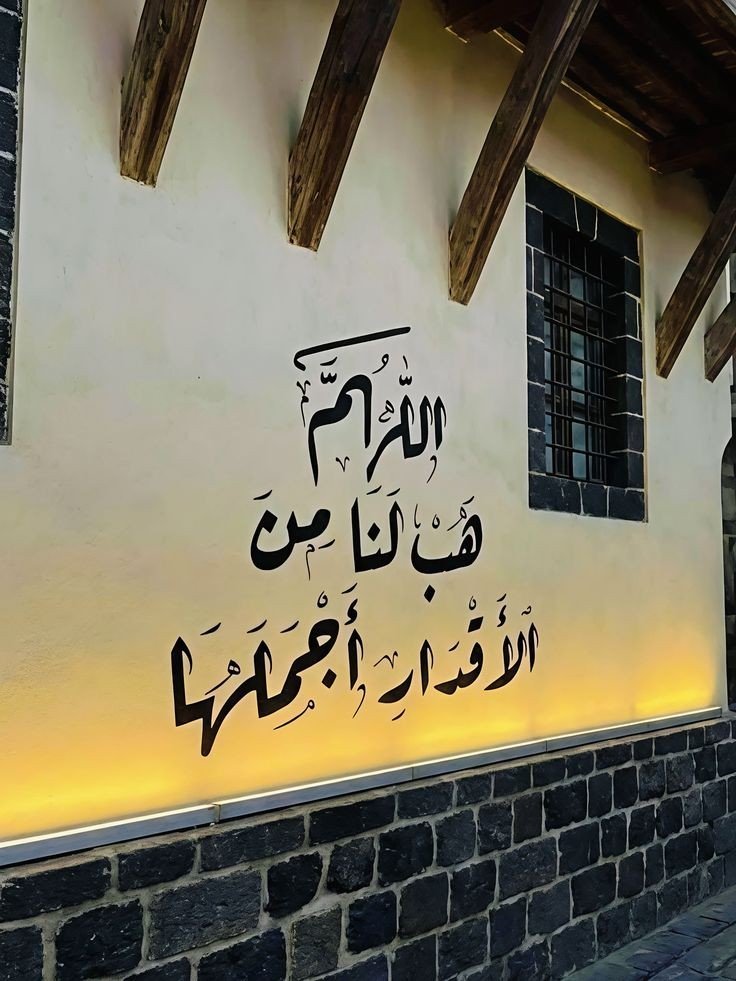 اللَّهُمَّ
هَبْ لَنَا مِنَ
الْأَقْدَارِ أَجْمَلَهَا